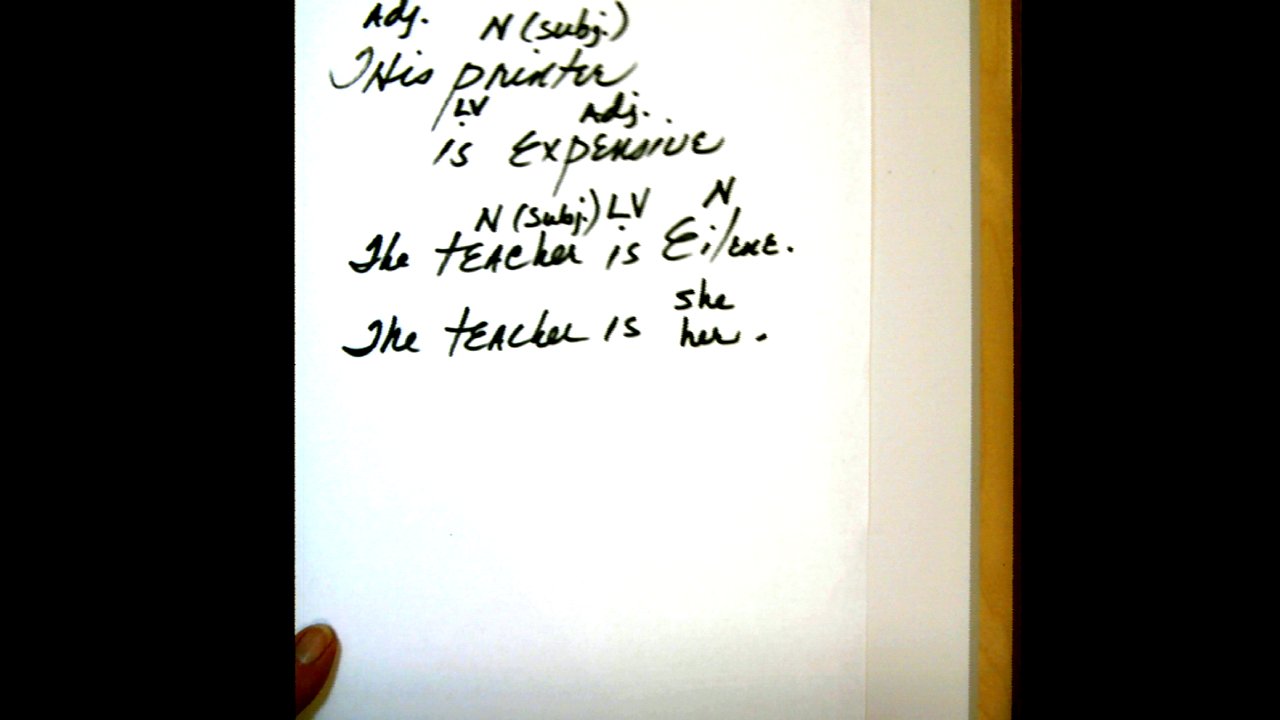 Adj. N (subj.)
This printer
LV Adj.
is Expensive
N (subj.) LV N
The teacher is Eilene.
she
The teacher is her.